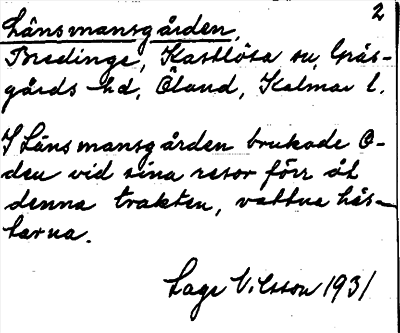 2
Länsmansgården,
Bredinge, Kastlösa sn, Gräs-
gårds hd, Öland, Kalmar l.
I Länsmansgården brukade O-
den vid sina resor förr åt
denna trakten, vattna häs-
tarna.
Lage Nilsson 1931